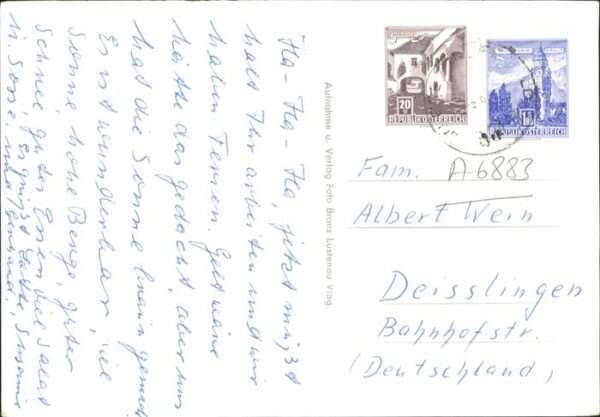 Ha-Ha-Ha, jetzt müßt
halt Ihr arbeiten und wir
haben Ferien. Gelt wäre
hätte das gedacht, aber uns
hat die Sonne braun gemacht
Es ist wunderbar, viel
Sonne, hohe Berge, guter
Schnee, gutes Essen viel Salat
m. Sosse,
Aufnahme u. Verlag Foto Branz Lustenau Vlbg.
20
REPUBLIK ÖSTERREICH
REPUBLIK ÖSTERREICH
Fam. A-6883
Albert Wein
Deisslingen
Bahnhofstr.
(Deutschland)